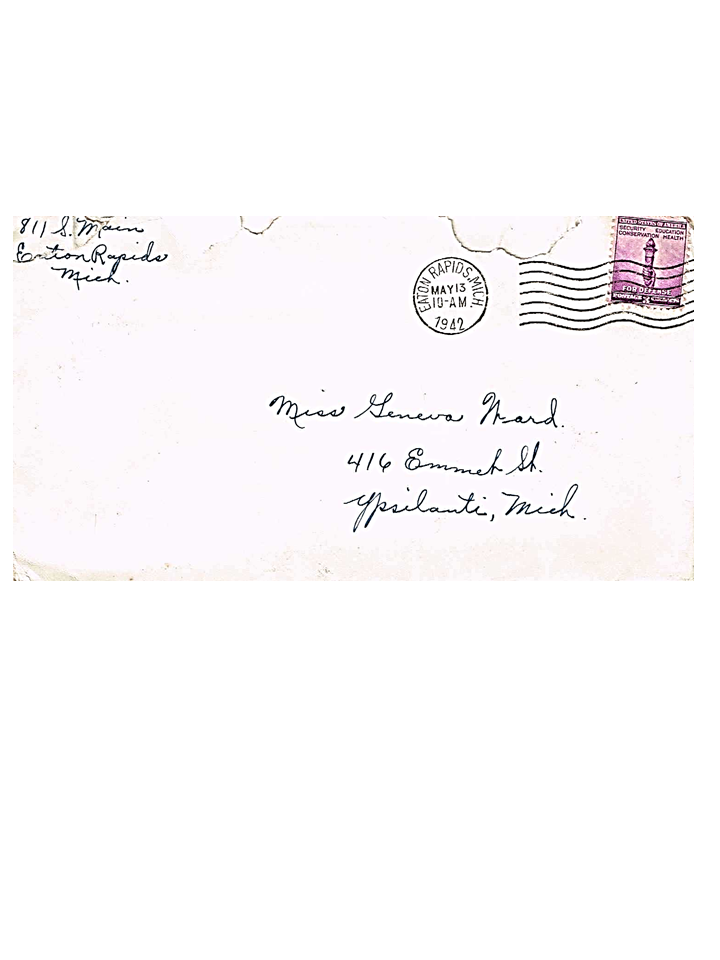 811 S. Main
Eaton Rapids
Mich.
EATON RAPIDS, MICH.
MAY 13
10-AM
1942
UNITED STATES OF AMERICA
SECURITY EDUCATION
CONSERVATION HEALTH
FOR DEFENSE
POSTAGE
Miss Geneva Ward.
416 Emmet St.
Ypsilanti, Mich.